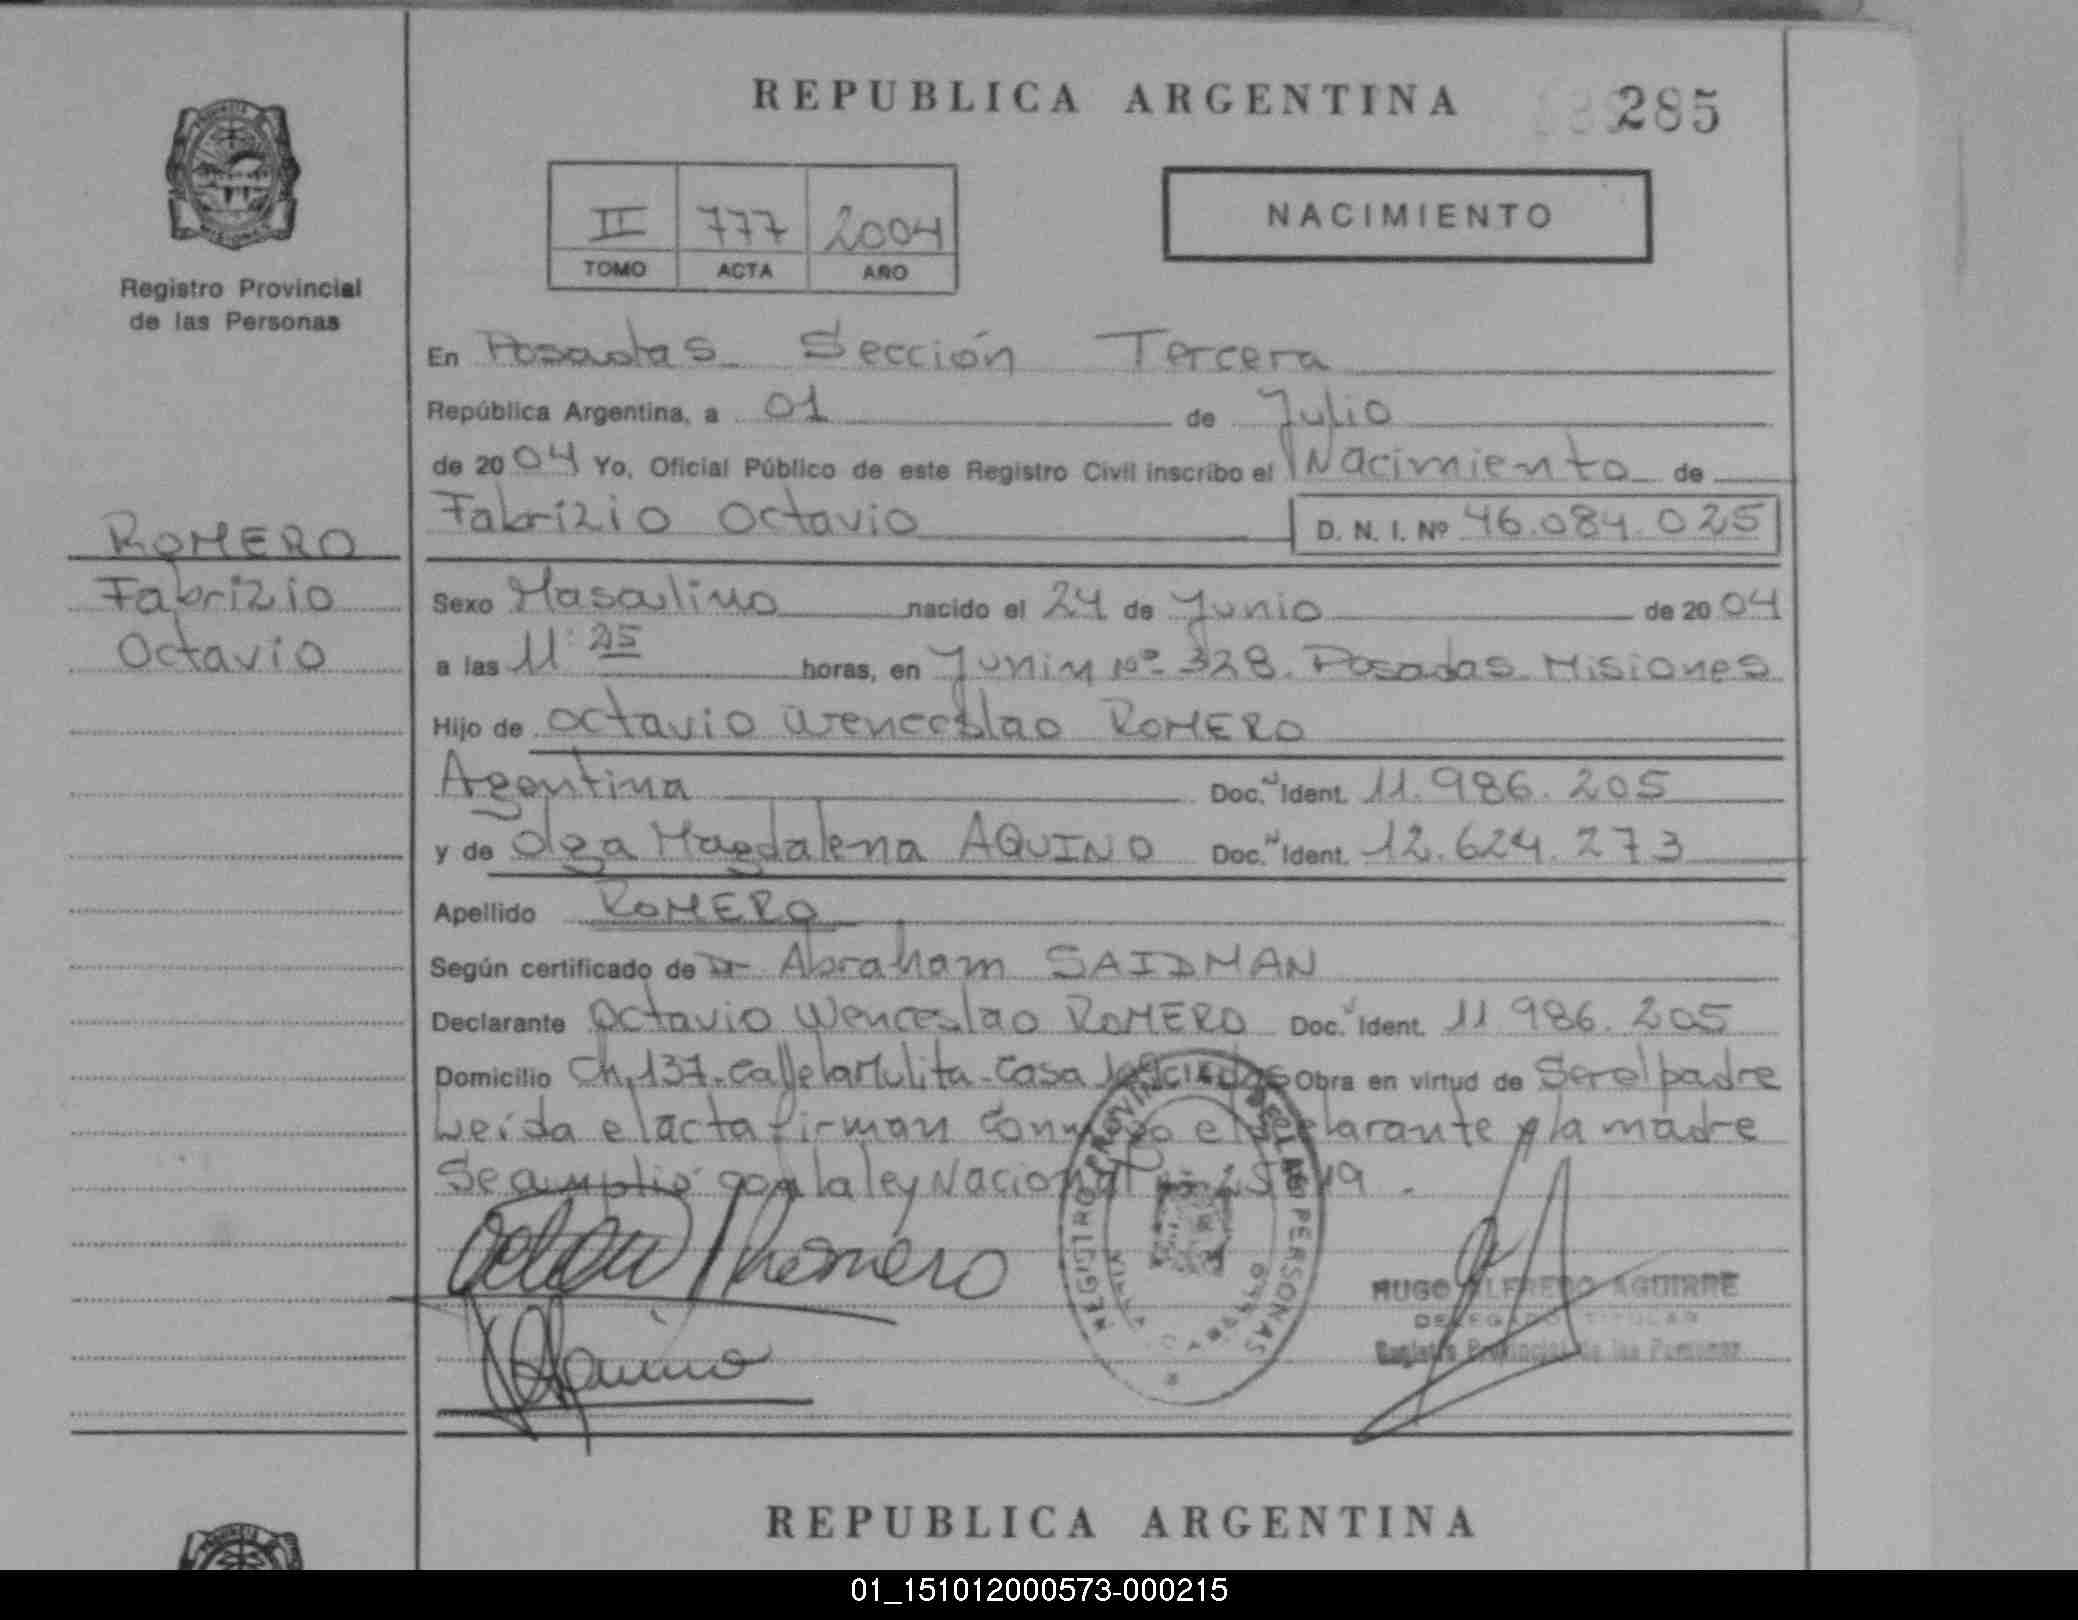 REPUBLICA ARGENTINA
285
NACIMIENTO
II 777 2004
TOMO ACTA AÑO
Registro Provincial
de las Personas
En Posadas Sección Tercera
República Argentina, a 01 de Julio
de 2004 Yo, Oficial Público de este Registro Civil inscribo el Nacimiento de
Fabrizio Octavio D. N. I. Nº 46.084.025
ROMERO
Fabrizio
Octavio
Sexo Masculino nacido el 24 de Junio de 2004
a las 11:25 horas, en Junin Nº 328. Posadas Misiones
Hijo de Octavio Wenceslao ROMERO
Agentina Doc. Ident. 11.986.205
y de Olga Magdalena AQUINO Doc. Ident. 12.624.273
Apellido ROMERO
Según certificado de Dr Abraham SAIDMAN
Declarante Octavio Wenceslao ROMERO Doc. Ident. 11 986.205
Domicilio Ch. 137- Calle la Mulita- Casa Obra en virtud de Ser el padre
Leída el acta firman el declarante y la madre
Se cumplió con la ley Nacional
Romero
REGISTRO PROVINCIAL DE LAS PERSONAS
HUGO ALFREDO AGUIRRE
DELEGADO TITULAR
Registro Provincial de las Personas
REPUBLICA ARGENTINA
01_151012000573-000215